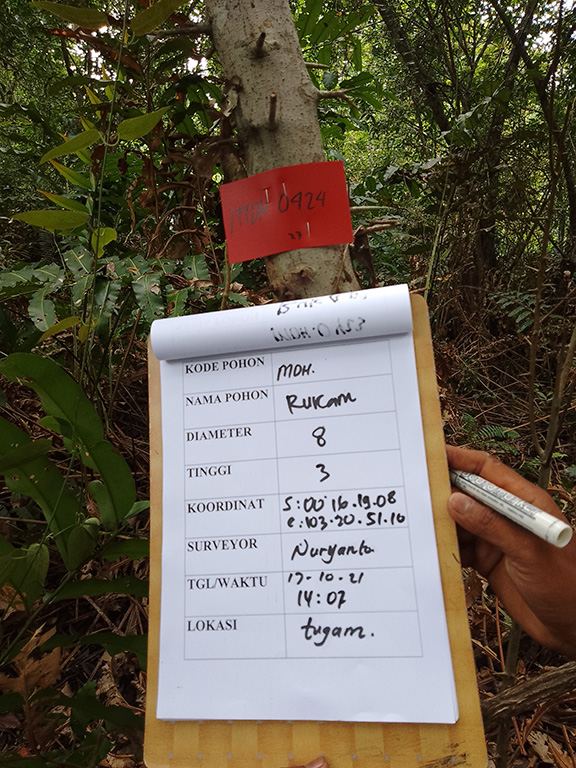 0424
KODE POHON MDH.
NAMA POHON Rukam
DIAMETER 8
TINGGI 3
KOORDINAT S:00 16.19.08
e:103.20.51.10
SURVEYOR Nuryanto
TGL/WAKTU 17-10-21
14:07
LOKASI tugam.